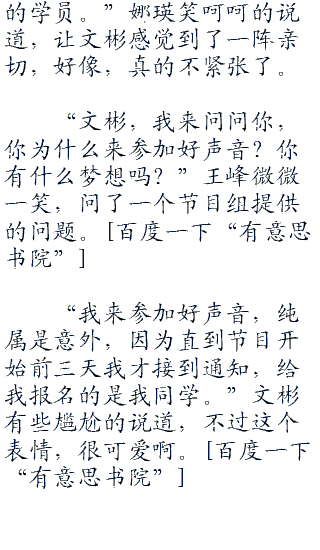 的学员。”娜瑛笑呵呵的说
道，让文彬感觉到了一阵亲
切，好像，真的不紧张了。
“文彬，我来问问你，
你为什么来参加好声音？你
有什么梦想吗？”王峰微微
一笑，问了一个节目组提供
的问题。[百度一下“有意思
书院”]
“我来参加好声音，纯
属是意外，因为直到节目开
始前三天我才接到通知，给
我报名的是我同学。”文彬
有些尴尬的说道，不过这个
表情，很可爱啊。[百度一下
“有意思书院”]